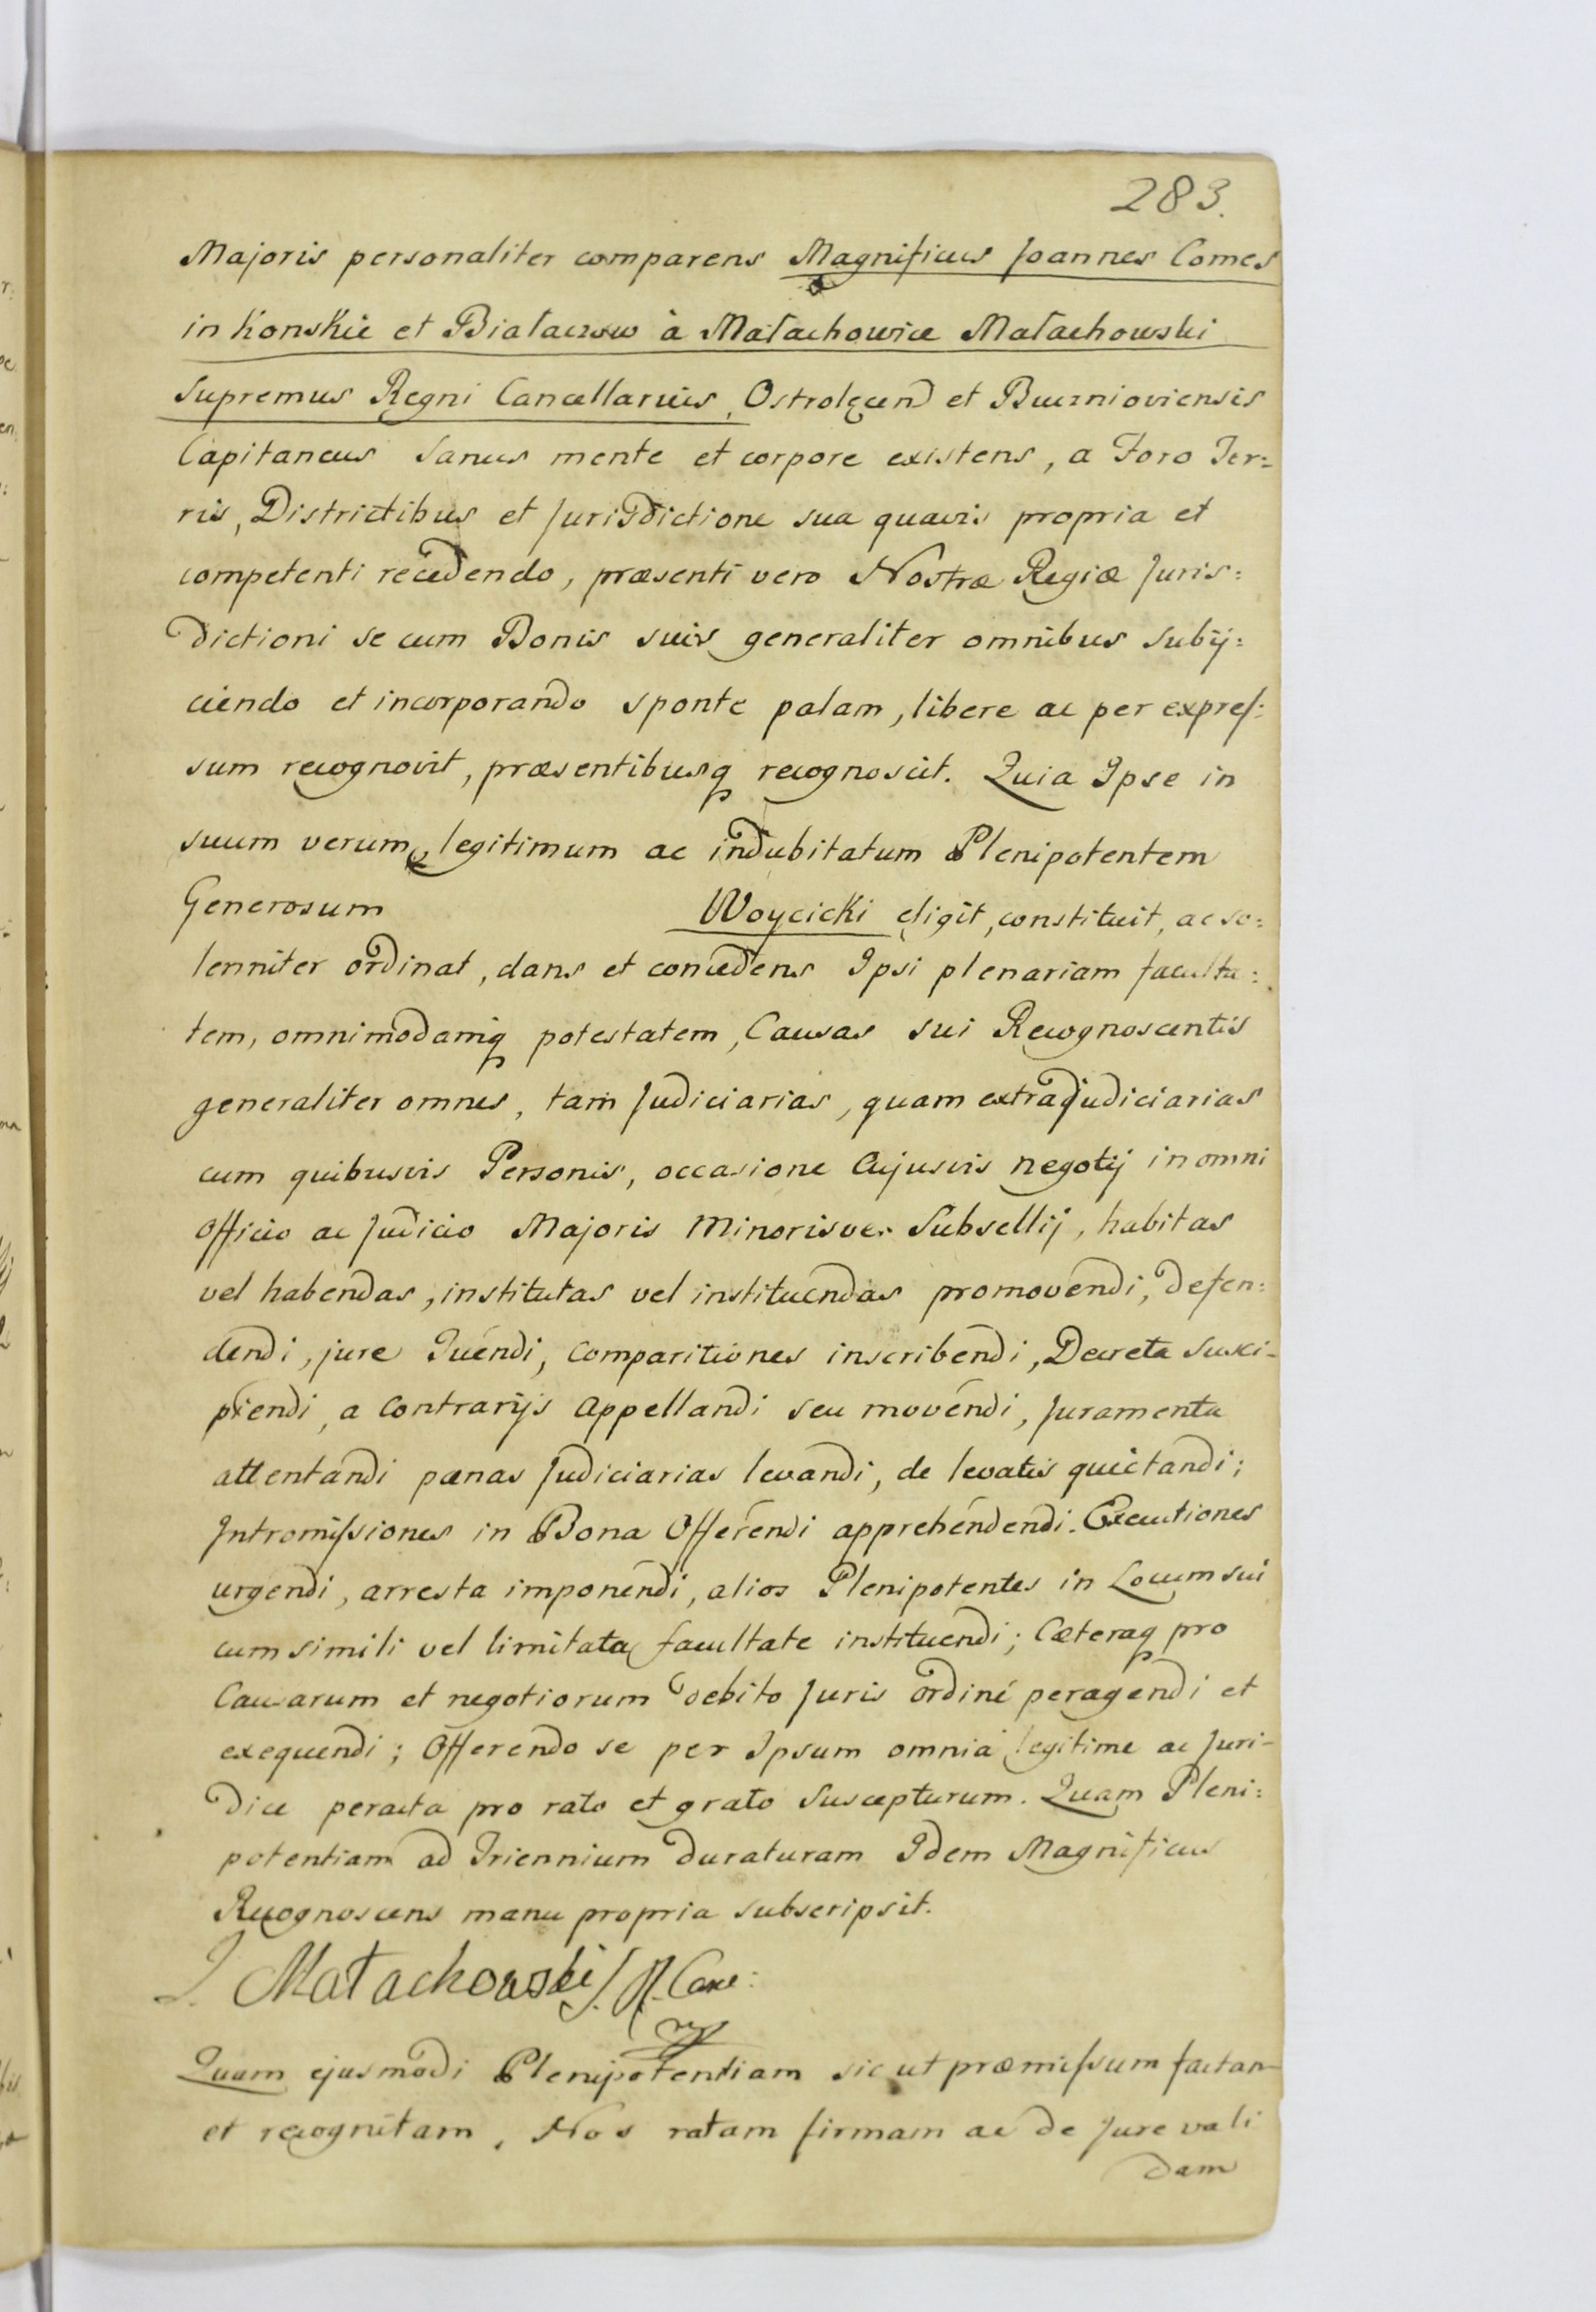 283.
Majoris personaliter comparens Magnificus Joannes Comes
in Konskie et Białaczow à Małachowice Małachowski
Supremus Regni Cancellarius, Ostrolęcen et
Capitaneus Sanus mente et corpore existens, a Foro Ter:
ris, Districtibus et Jurisdictione sua quavis propria et
competenti recedendo, præsenti vero Nostræ Regiæ Juris:
dictioni se cum Bonis suis generaliter omnibus subij:
ciendo et incorporando sponte palam, libere ac per expres:
sum recognovit, præsentibusq recognoscit. Quia Ipse in
suum verum, legitimum ac indubitatum Plenipotentem
Generosum Woycicki eligit, constituit, ac so:
lenniter ordinat, dans et concedens Ipsi plenariam faculta:
tem, omnimodamq potestatem, Causas sui Recognoscentis
generaliter omnes, tam Judiciarias, quam extrajudiciarias
cum quibusvis Personis, occasione Cujusvis negotij in omni
Officio ac Judicio Majoris Minorisve Subsellij, habitas
vel habendas, institutas vel instituendas promovendi, defen:
dendi, jure Tuendi, Comparitiones inscribendi, Decreta susci-
piendi, a Contrarijs Appellandi seu movendi, Juramenta
attentandi pænas Judiciarias levandi, de levatis quietandi;
Intromissiones in Bona Offerendi apprehendendi. Executiones
urgendi, arresta imponendi, alios Plenipotentes in Locum sui
cum simili vel limitata facultate instituendi; Cæteraq pro
Causarum et negotiorum debito Juris ordine peragendi et
exequendi; Offerendo se per Ipsum omnia legitime ac Juri-
dice peracta pro rato et grato Suscepturum. Quam Pleni:
potentiam ad Triennium duraturam Idem Magnificus
Recognoscens manu propria subscripsit.
J. Małachowski S. R. Canc:
Quam ejusmodi Plenipotentiam sic ut præmissum factam
et recognitam, Nos ratam firmam ac de Jure vali
dam